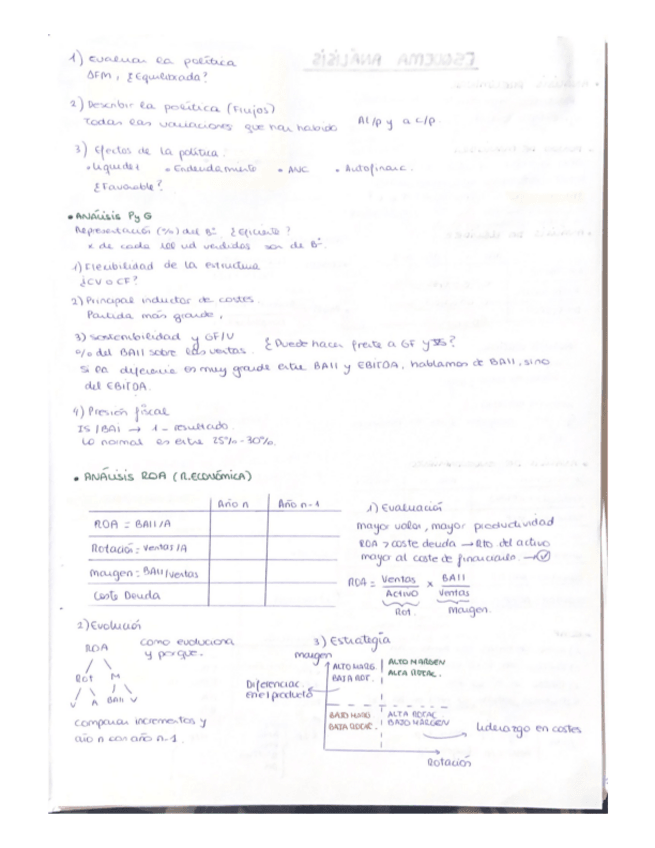 1) Evaluar la política
ΔFM, ¿Equilibrada?
2) Describir la política (Flujos)
Todas las variaciones que han habido Al/p y a c/p.
3) Efectos de la política.
• Liquidez • Endeudamiento • ANC • Autofinanc.
¿Favorable?
• ANÁLISIS PyG
Representación (%) del Bº ¿Eficiente?
x de cada 100 ud vendidas son de Bº
1) Flexibilidad de la estructura
¿CV o CF?
2) Principal inductor de costes.
Partida más grande,
3) Sostenibilidad y GF/V
% del BAII sobre las ventas. ¿Puede hacer frente a GF y
Si la diferencia es muy grande entre BAII y EBITDA, hablamos de BAII, sino
del EBITDA.
4) Presión fiscal
IS/BAI → 1 - resultado.
Lo normal es entre 25% - 30%.
• ANÁLISIS ROA (R.ECONÓMICA)
Año n Año n-1
ROA = BAII/A
Rotación = Ventas/A
Margen = BAII/ventas
Coste Deuda
1) Evaluación
mayor valor, mayor productividad
ROA > coste deuda → Rto del activo
mayor al coste de financiarlo. → ✓
ROA = Ventas/Activo x BAII/Ventas
Rot. Margen.
2) Evolución
ROA
Rot M
V A BAII V
como evoluciona
y porque.
comparar incrementos y
año n con año n-1.
3) Estrategia
margen
ALTO MARG.
BAJA ROT.
ALTO MARGEN
ALTA ROTAC.
Diferenciac.
en el producto
BAJO MARG
BAJA ROTAC.
ALTA ROTAC
BAJO MARGEN
Liderazgo en costes
Rotación